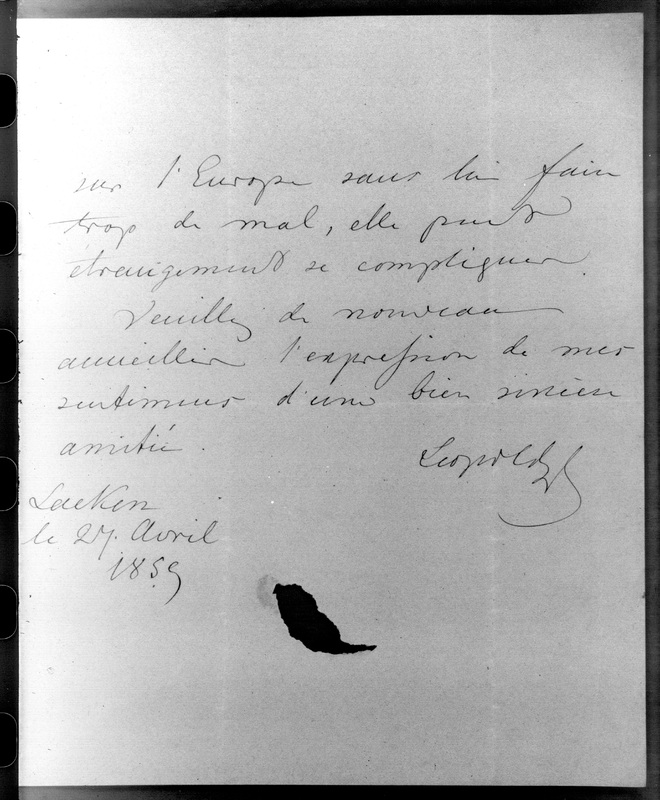 sur l'Europe sans lui faire
trop de mal, elle peut
étrangement se compliquer.
Veuillez de nouveau
accueillir l'expression de mes
sentimens d'une bien sincère
amitié.
Leopold
Laeken
le 27. Avril
1859